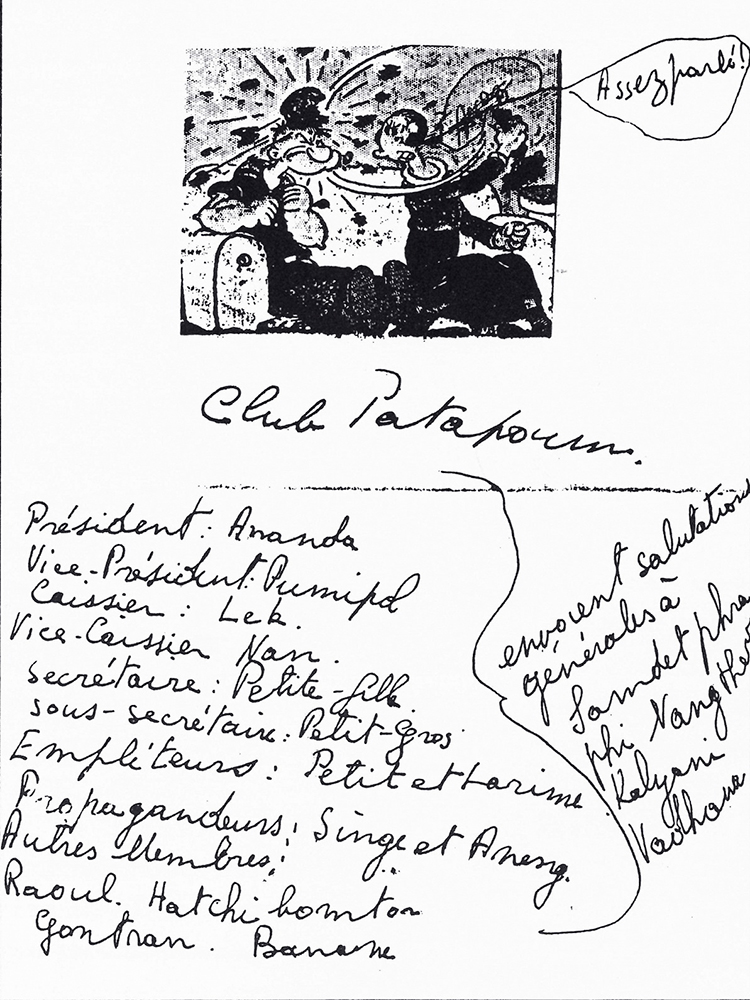 Assez parlé!
Club Patapoum.
Président: Ananda
Vice-Président: Pumipol
Caissier: Lek.
Vice-Caissier Nan.
secrétaire: Petite-fille
sous-secrétaire: Petit-Gros
Empléteurs: Petit et Larime
Propagandeurs: Singe et Aneng.
Autres Membres:
Raoul. Hatchi bomton
Gontran. Banane
envoient salutations
générales à
Somdet phra
phi Nang Ther
Kalyani
Vadhana